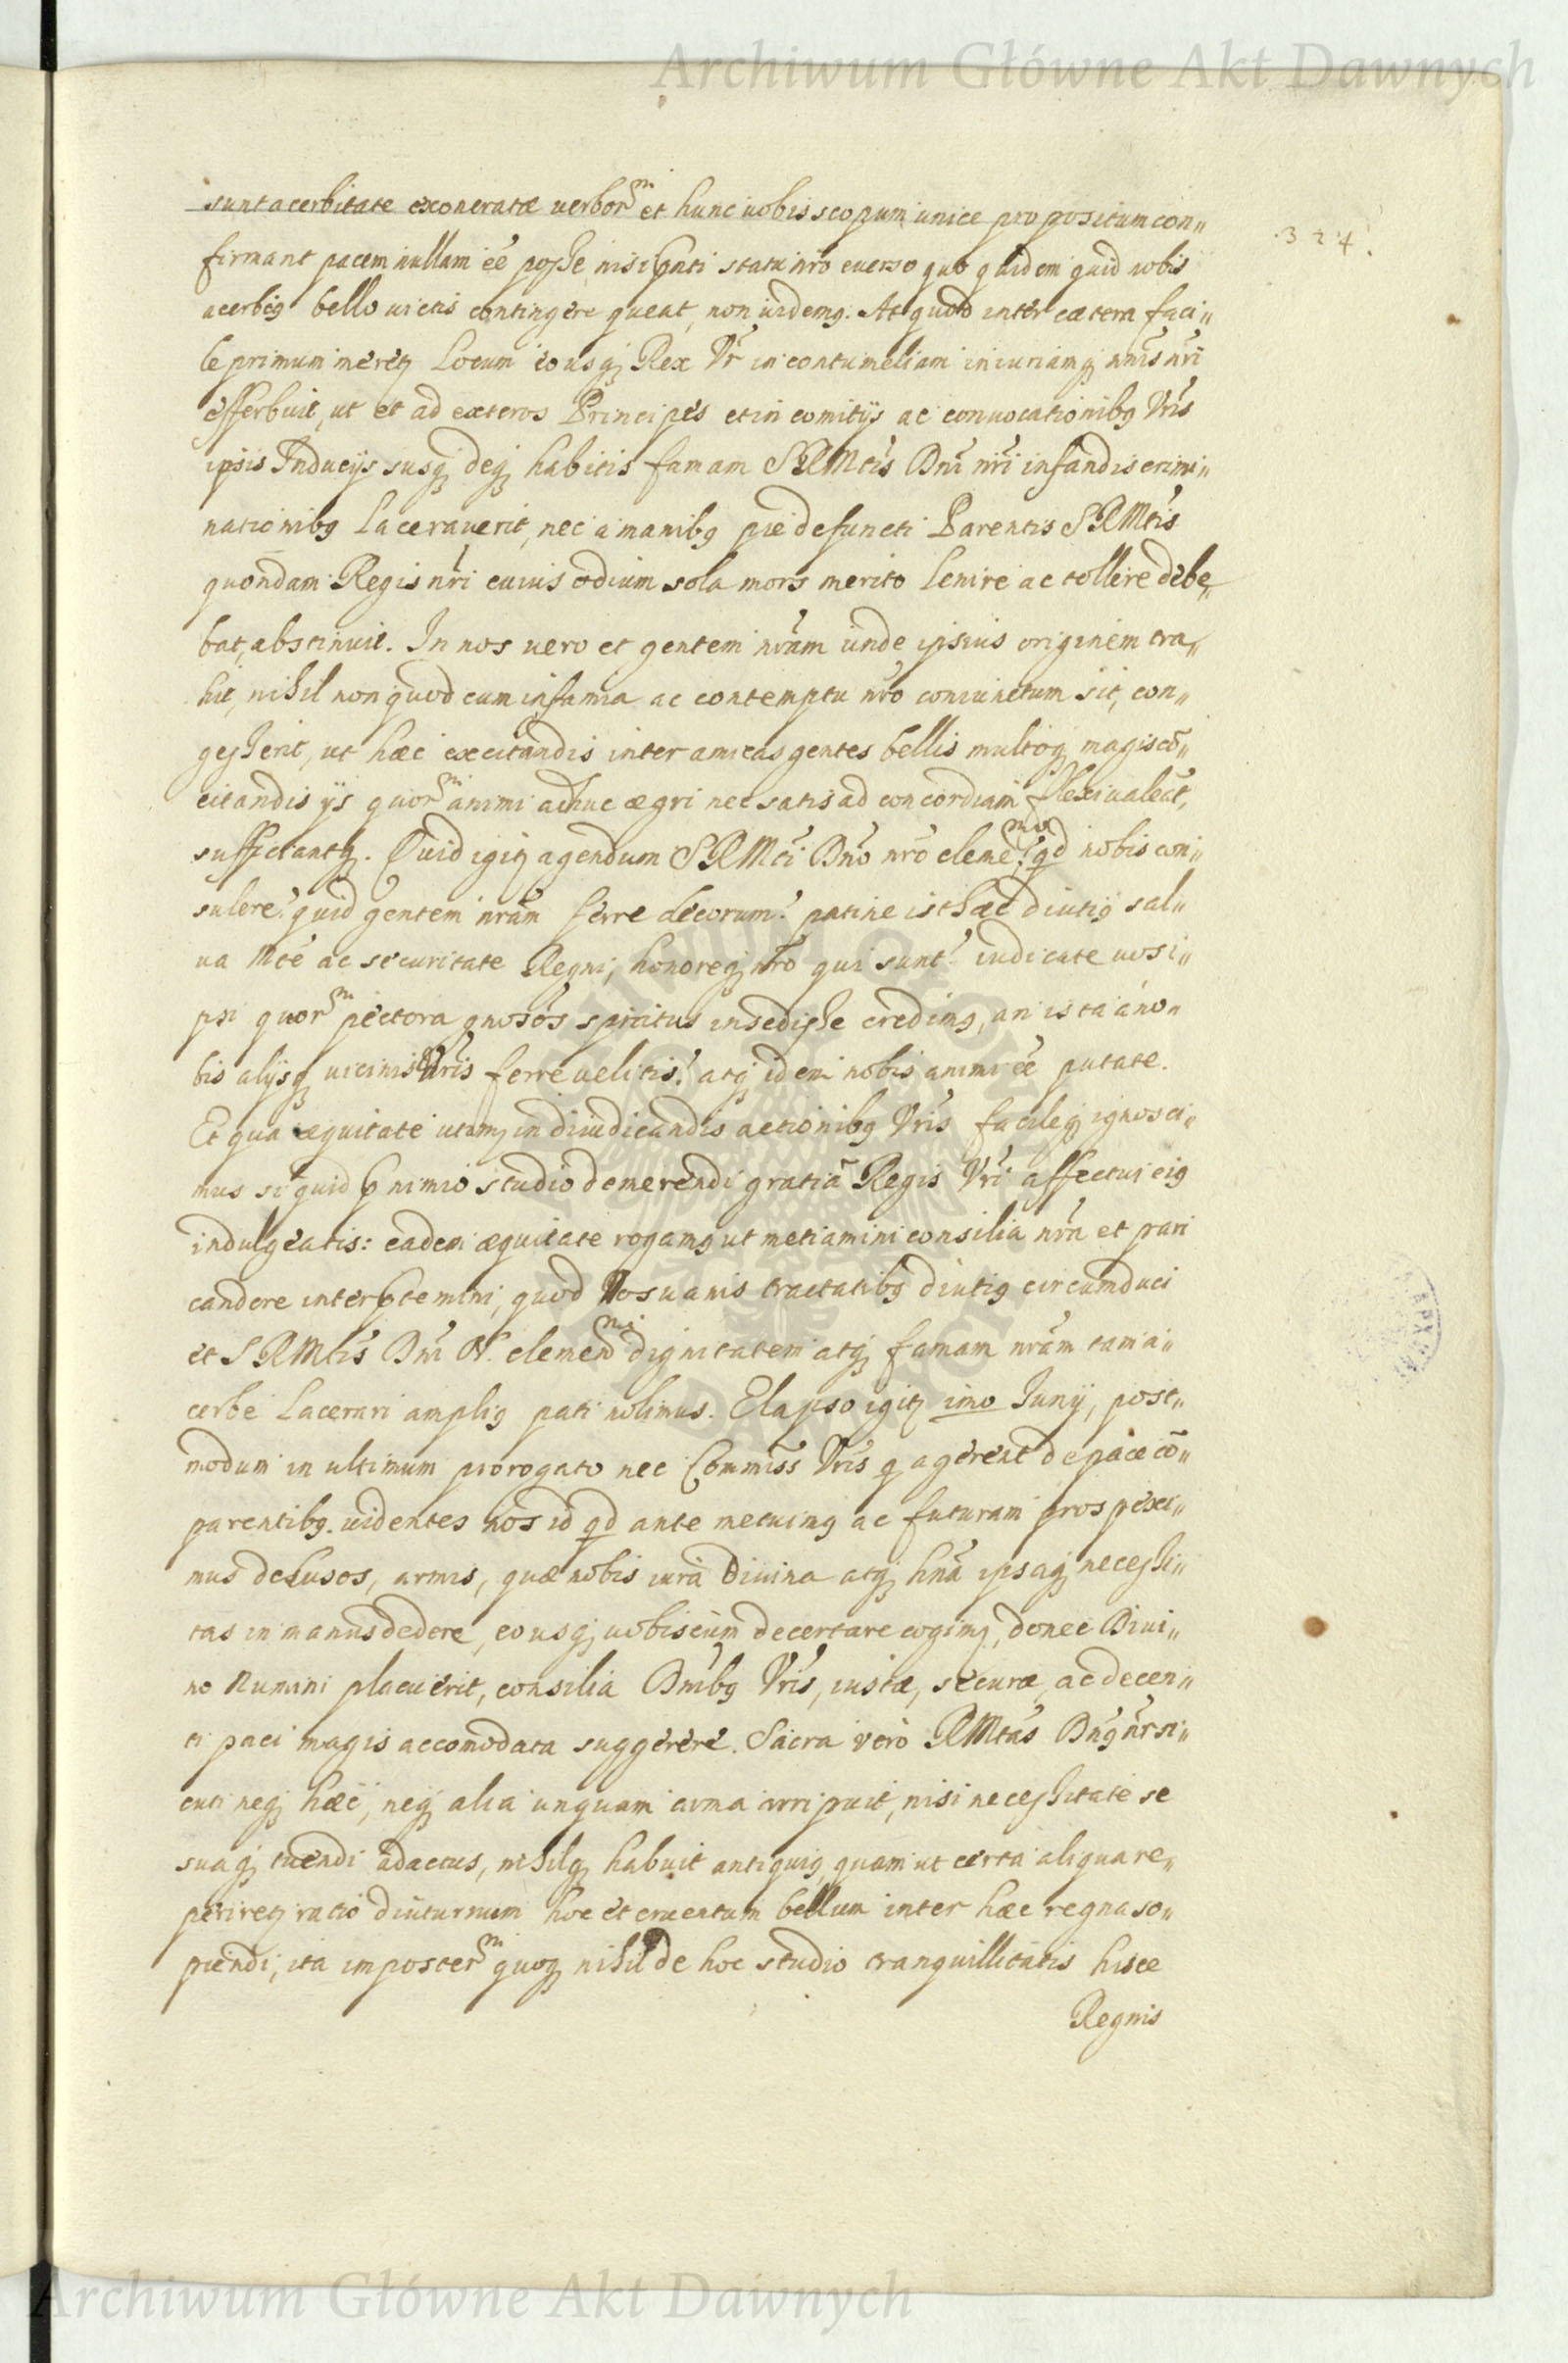 Archiwum Główne Akt Dawnych
324
sunt acerbitate exoneratæ uerborm et hunc uobis scopum unice propositum con„
firmant pacem nullam eē posse, nisi pnti statu nrō euerso quo quidem quid nobis
acerbig bello uictis contingere queat, non uidemg. At quod inter cætera faci„
le primum meretz Locum eousqz Rex Vr̄ in contumeliam iniuriamqz nr̄i
efferbuit, ut et ad exteros Principes et in comitijs ac conuocationibg Vrīs
ipsis Inducijs susqz deqz habitis famam SRMtīs Dnī nrī infandis crimi„
nationibg Lacerauerit, nec a manibg pie defuncti Parentis SRMtīs
quondam Regis nrī cuius odium sola mors merito lenire ac tollere debe„
bat, abstinuit. In nos uero et gentem nrām unde ipsius originem tra„
hit, nihil non quod cum infamia ac contemptu nrō coniunctum sit, con„
gesserit, ut hæc excitandis inter amicas gentes bellis multoqz magis cō„
citandis ijs quorm animi adhuc ægri nec satis ad concordiam flexi ualeāt,
suffectantz. Quid igitz agendum SRMtī Dnō nrō clemēmo? qd nobis con„
sulere? quid gentem nrām ferre decorum? patine isthæc diutig sal„
ua Mtē ac securitate Regni, honoreqz nrō qui sunt? iudicate uosi„
psi quorm pectora gnosos spiritus insedisse credimg, an ista a no„
bis alijsqz uicinis Vrīs ferre uelitis? atqz idem nobis animi eē putate.
Et qua æquitate utamz in diiudicandis actionibg Vrīs facileqz ignosci„
mus si quid p nimio studio demerendi gratiā Regis Vrī affectui eig
indulgeatis: eadem æquitate rogamg ut metiamini consilia nrā et pari
candore interptemini, quod Nos uanis tractatibg diutig circumduci
et SRMtīs Dnī N. clemenmi dignitatem atqz famam nrām tam a„
cerbe Lacerari amplig pati nolimus. Elapso igitz imo Junij, post„
modum in ultimum prorogato nec Commiss Vrīs q agerent de pace cō„
parentibg. uidentes nos id qd ante metuimg ac futuram prospexi„
mus delusos, armis, quæ nobis iura Diuina atqz hnā ipsaqz necessi„
tas in manus dedere, eousqz uobiscum decertare cogimz, donec Diui„
no Numini placuerit, consilia Dnībg Vrīs, iustæ, securæ, ac decen„
ti paci magis accomodata suggerere. Sacra vero RMtās Dnīg nr̄ si„
cuti neqz hæc, neqz alia unquam arma arripuit, nisi necessitate se
suaqz tuendi adactus, nihilqz habuit antiquig, quam ut certa aliqua re„
periretz ratio diuturnum hoc et cruentum bellum inter hæc regna so„
piendi, ita imposterm quoqz nihil de hoc studio tranquillitatis hisce
Regnis
Archiwum Główne Akt Dawnych